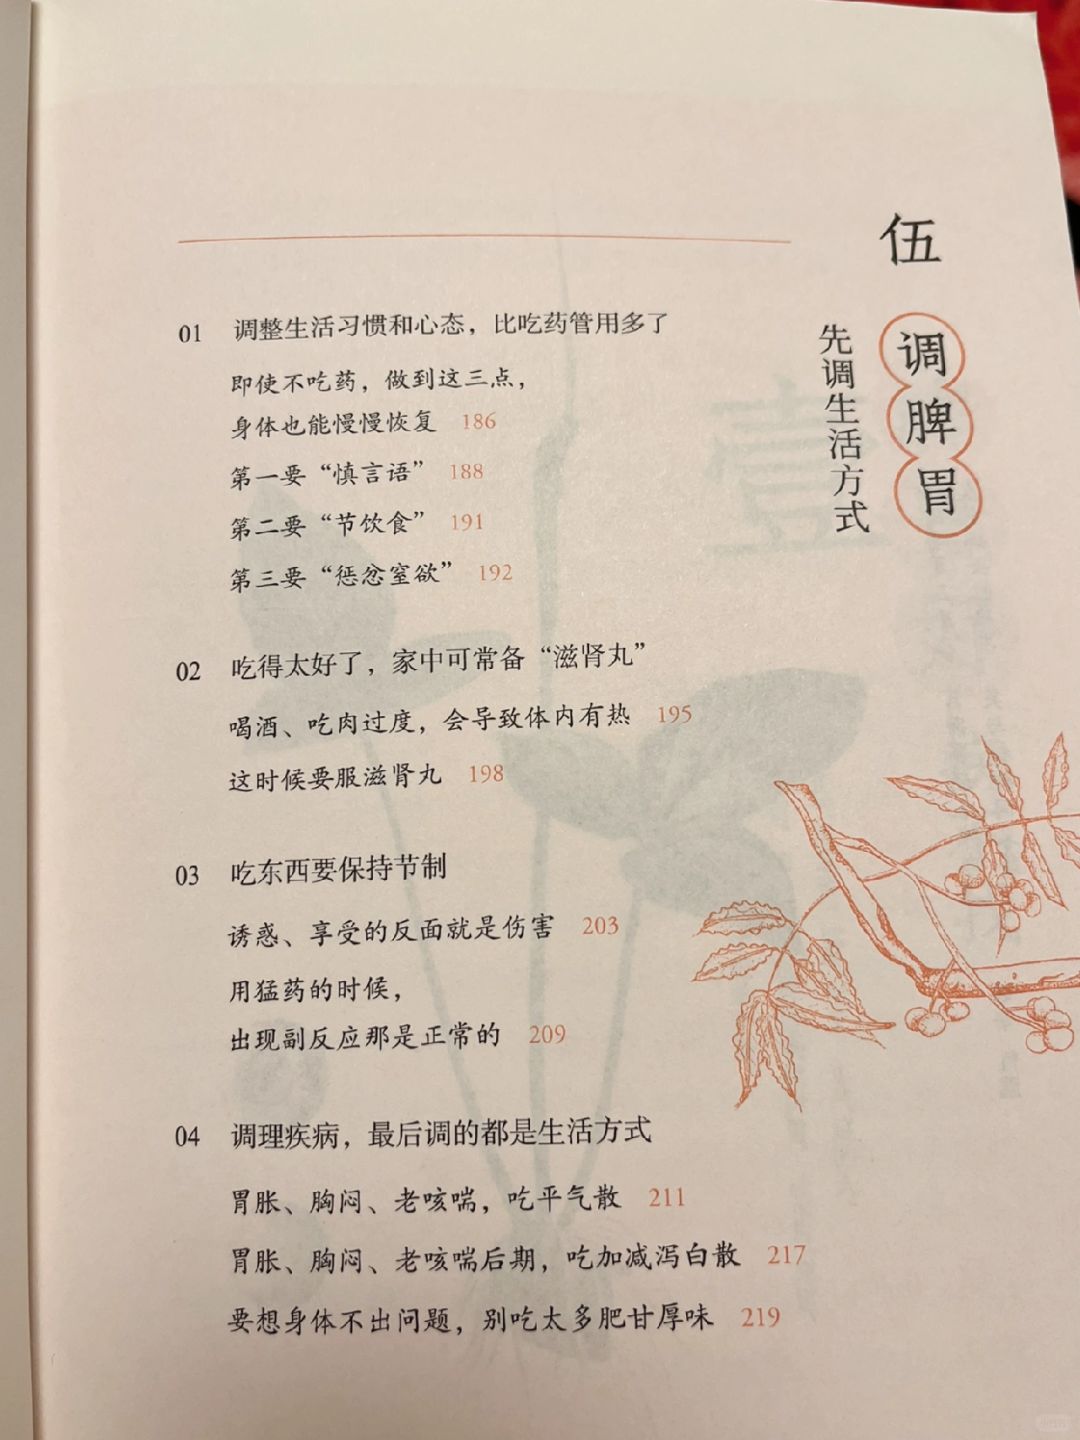 伍
调脾胃
先调生活方式
01 调整生活习惯和心态，比吃药管用多了
即使不吃药，做到这三点，
身体也能慢慢恢复 186
第一要“慎言语” 188
第二要“节饮食” 191
第三要“惩忿窒欲” 192
02 吃得太好了，家中可常备“滋肾丸”
喝酒、吃肉过度，会导致体内有热 195
这时候要服滋肾丸 198
03 吃东西要保持节制
诱惑、享受的反面就是伤害 203
用猛药的时候，
出现副反应那是正常的 209
04 调理疾病，最后调的都是生活方式
胃胀、胸闷、老咳喘，吃平气散 211
胃胀、胸闷、老咳喘后期，吃加减泻白散 217
要想身体不出问题，别吃太多肥甘厚味 219
壹